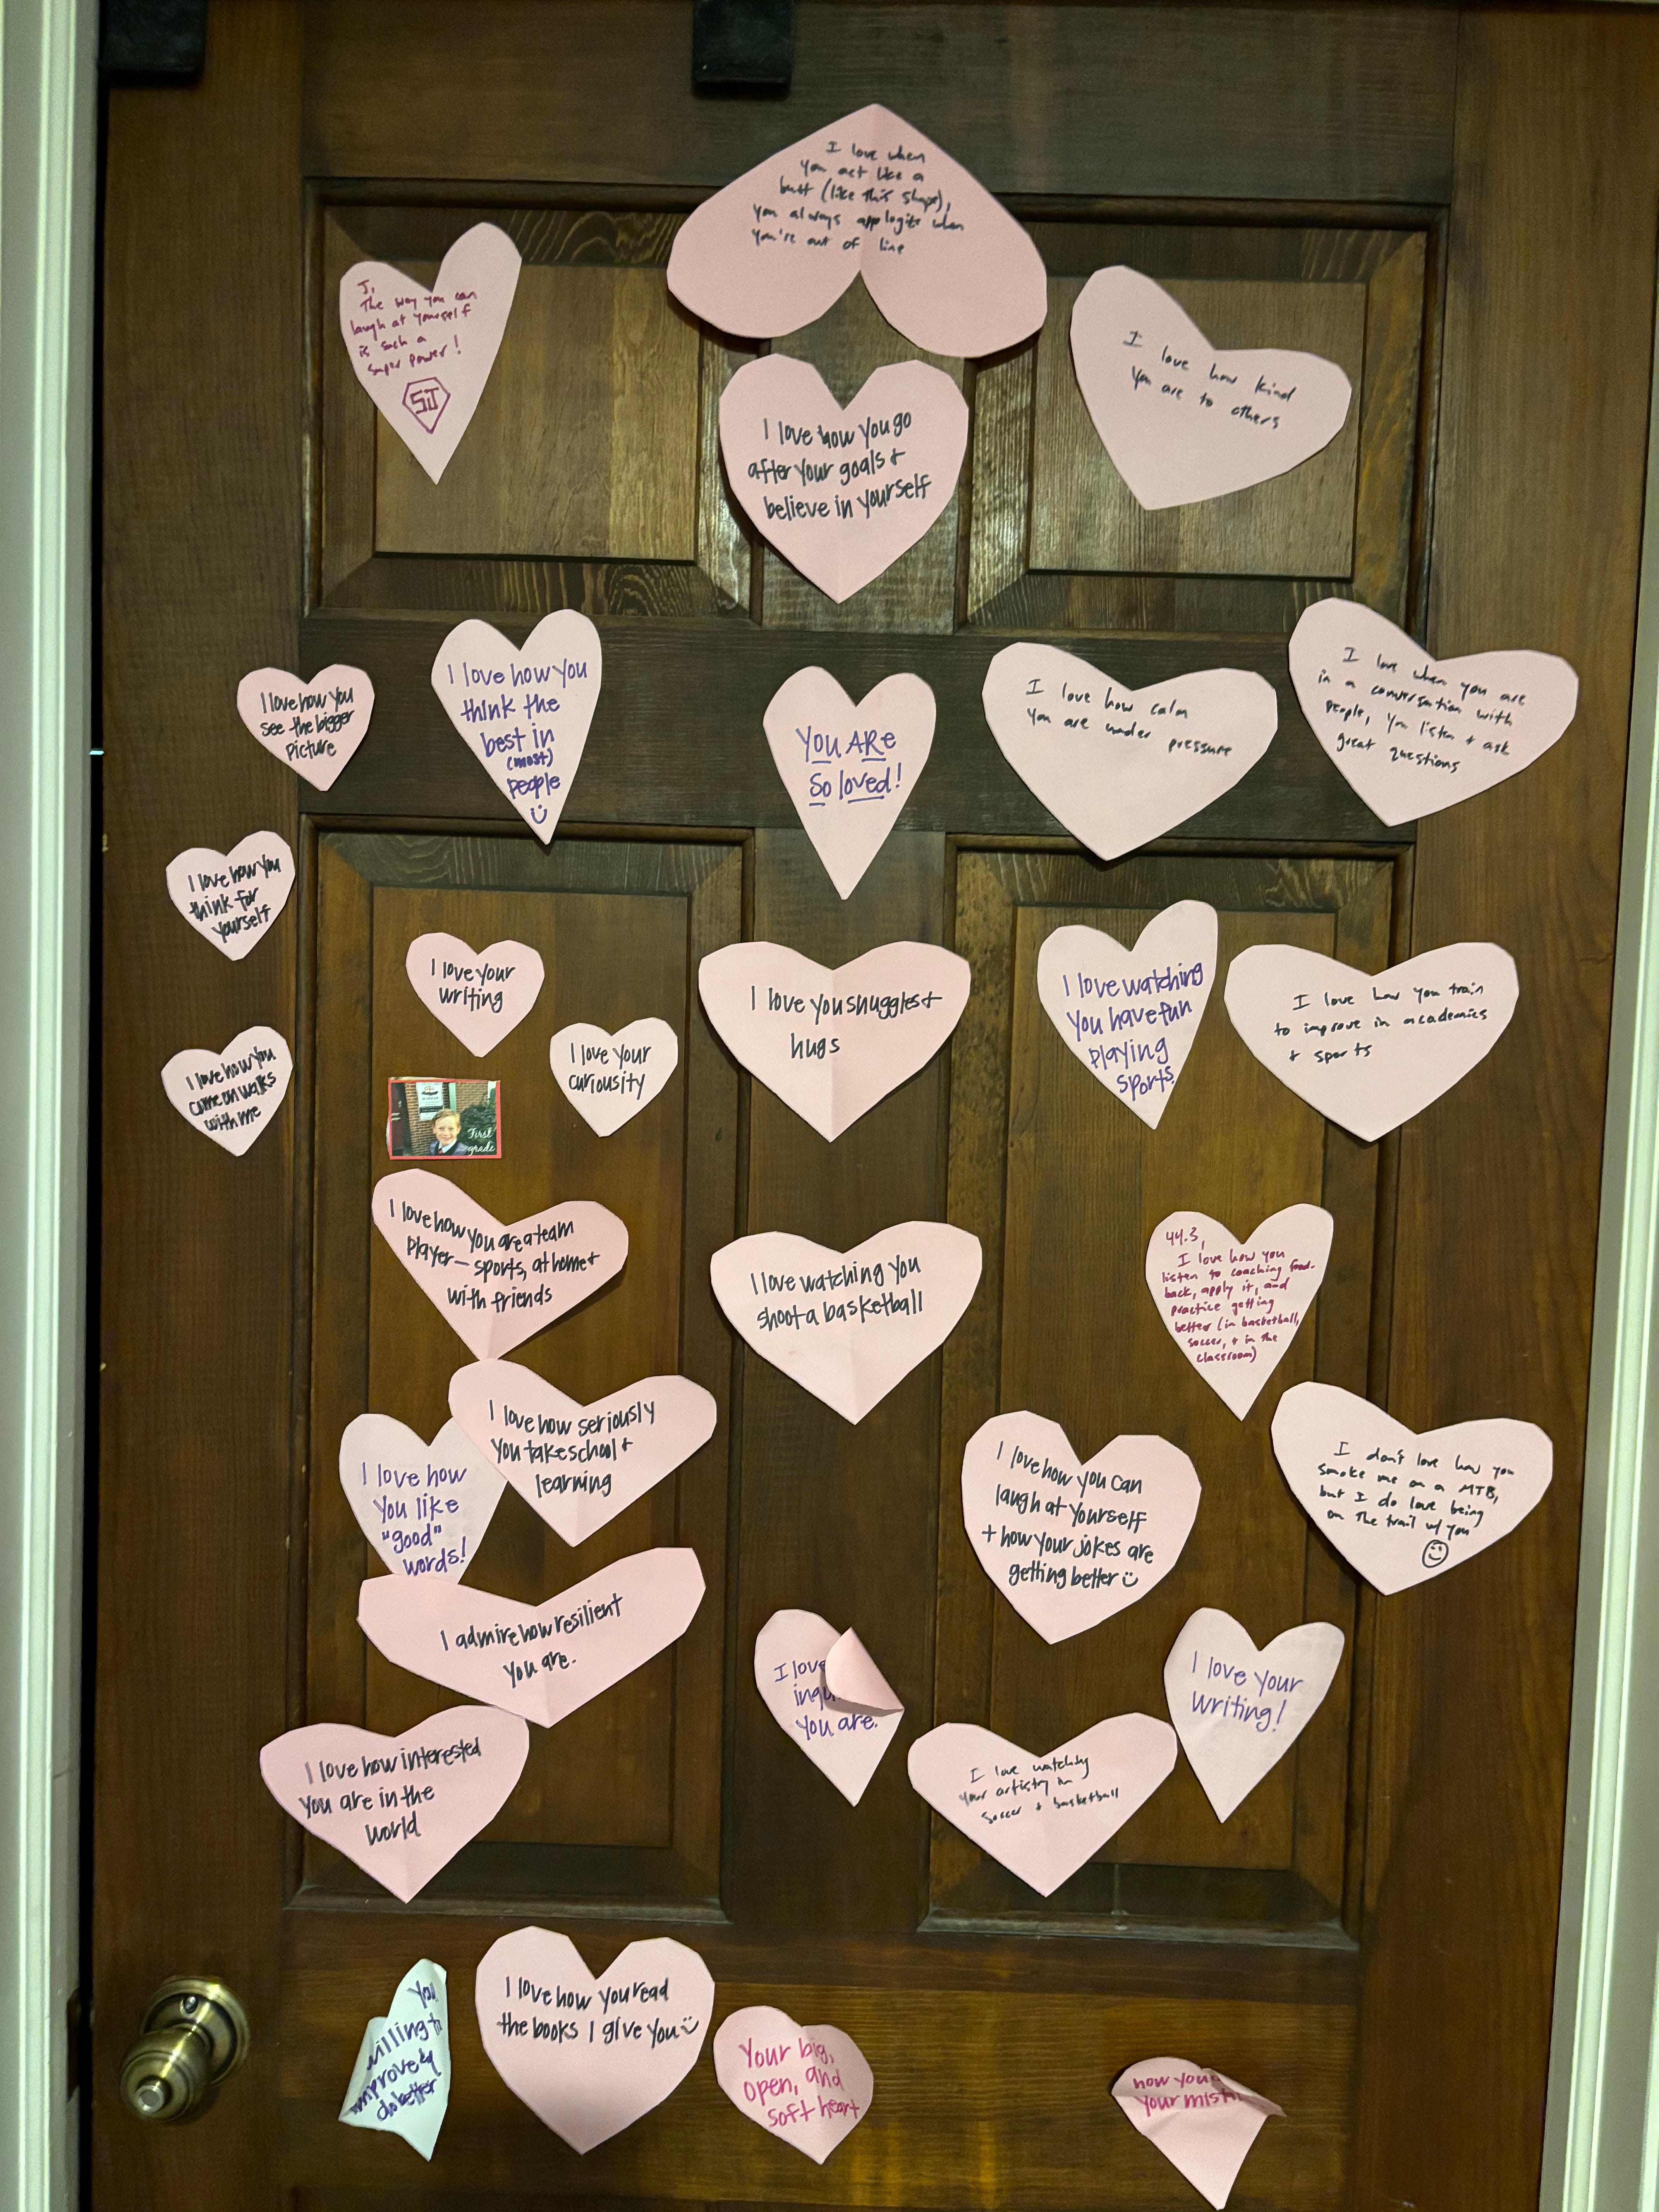 I love when
you act like a
butt (like this shape),
you always applogize when
you're out of line
J,
The way you can
laugh at yourself
is such a
super power!
SJ
I love how kind
you are to others
I love how you go
after your goals +
believe in yourself
I love how you
see the bigger
picture
I love how you
think the
best in
(most)
people
YOU ARE
So loved!
I love how calm
you are under pressure
I love when you are
in a conversation with
people, you listen + ask
great questions
I love how you
think for
yourself
I love your
writing
I love you snuggles +
hugs
I love watching
you have fun
playing
sports.
I love how you train
to improve in academics
+ sports
I love how you
come on walks
with me
I love your
curiousity
First
grade
I love how you are a team
player — sports, at home +
with friends
I love watching you
shoot a basketball
44.3,
I love how you
listen to coaching feed-
back, apply it, and
practice getting
better (in basketball,
soccer, + in the
classroom)
I love how seriously
you take school +
learning
I love how
you like
"good"
words!
I love how you can
laugh at yourself
+ how your jokes are
getting better
I don't love how you
smoke me on a MTB,
but I do love being
on the trail w/ you
I admire how resilient
you are.
I love
you are.
I love your
writing!
I love how interested
you are in the
world
I love watching
your artistry in
soccer + basketball
You
willing to
improve &
do better
I love how you read
the books I give you
Your big,
open, and
soft heart
how you
your